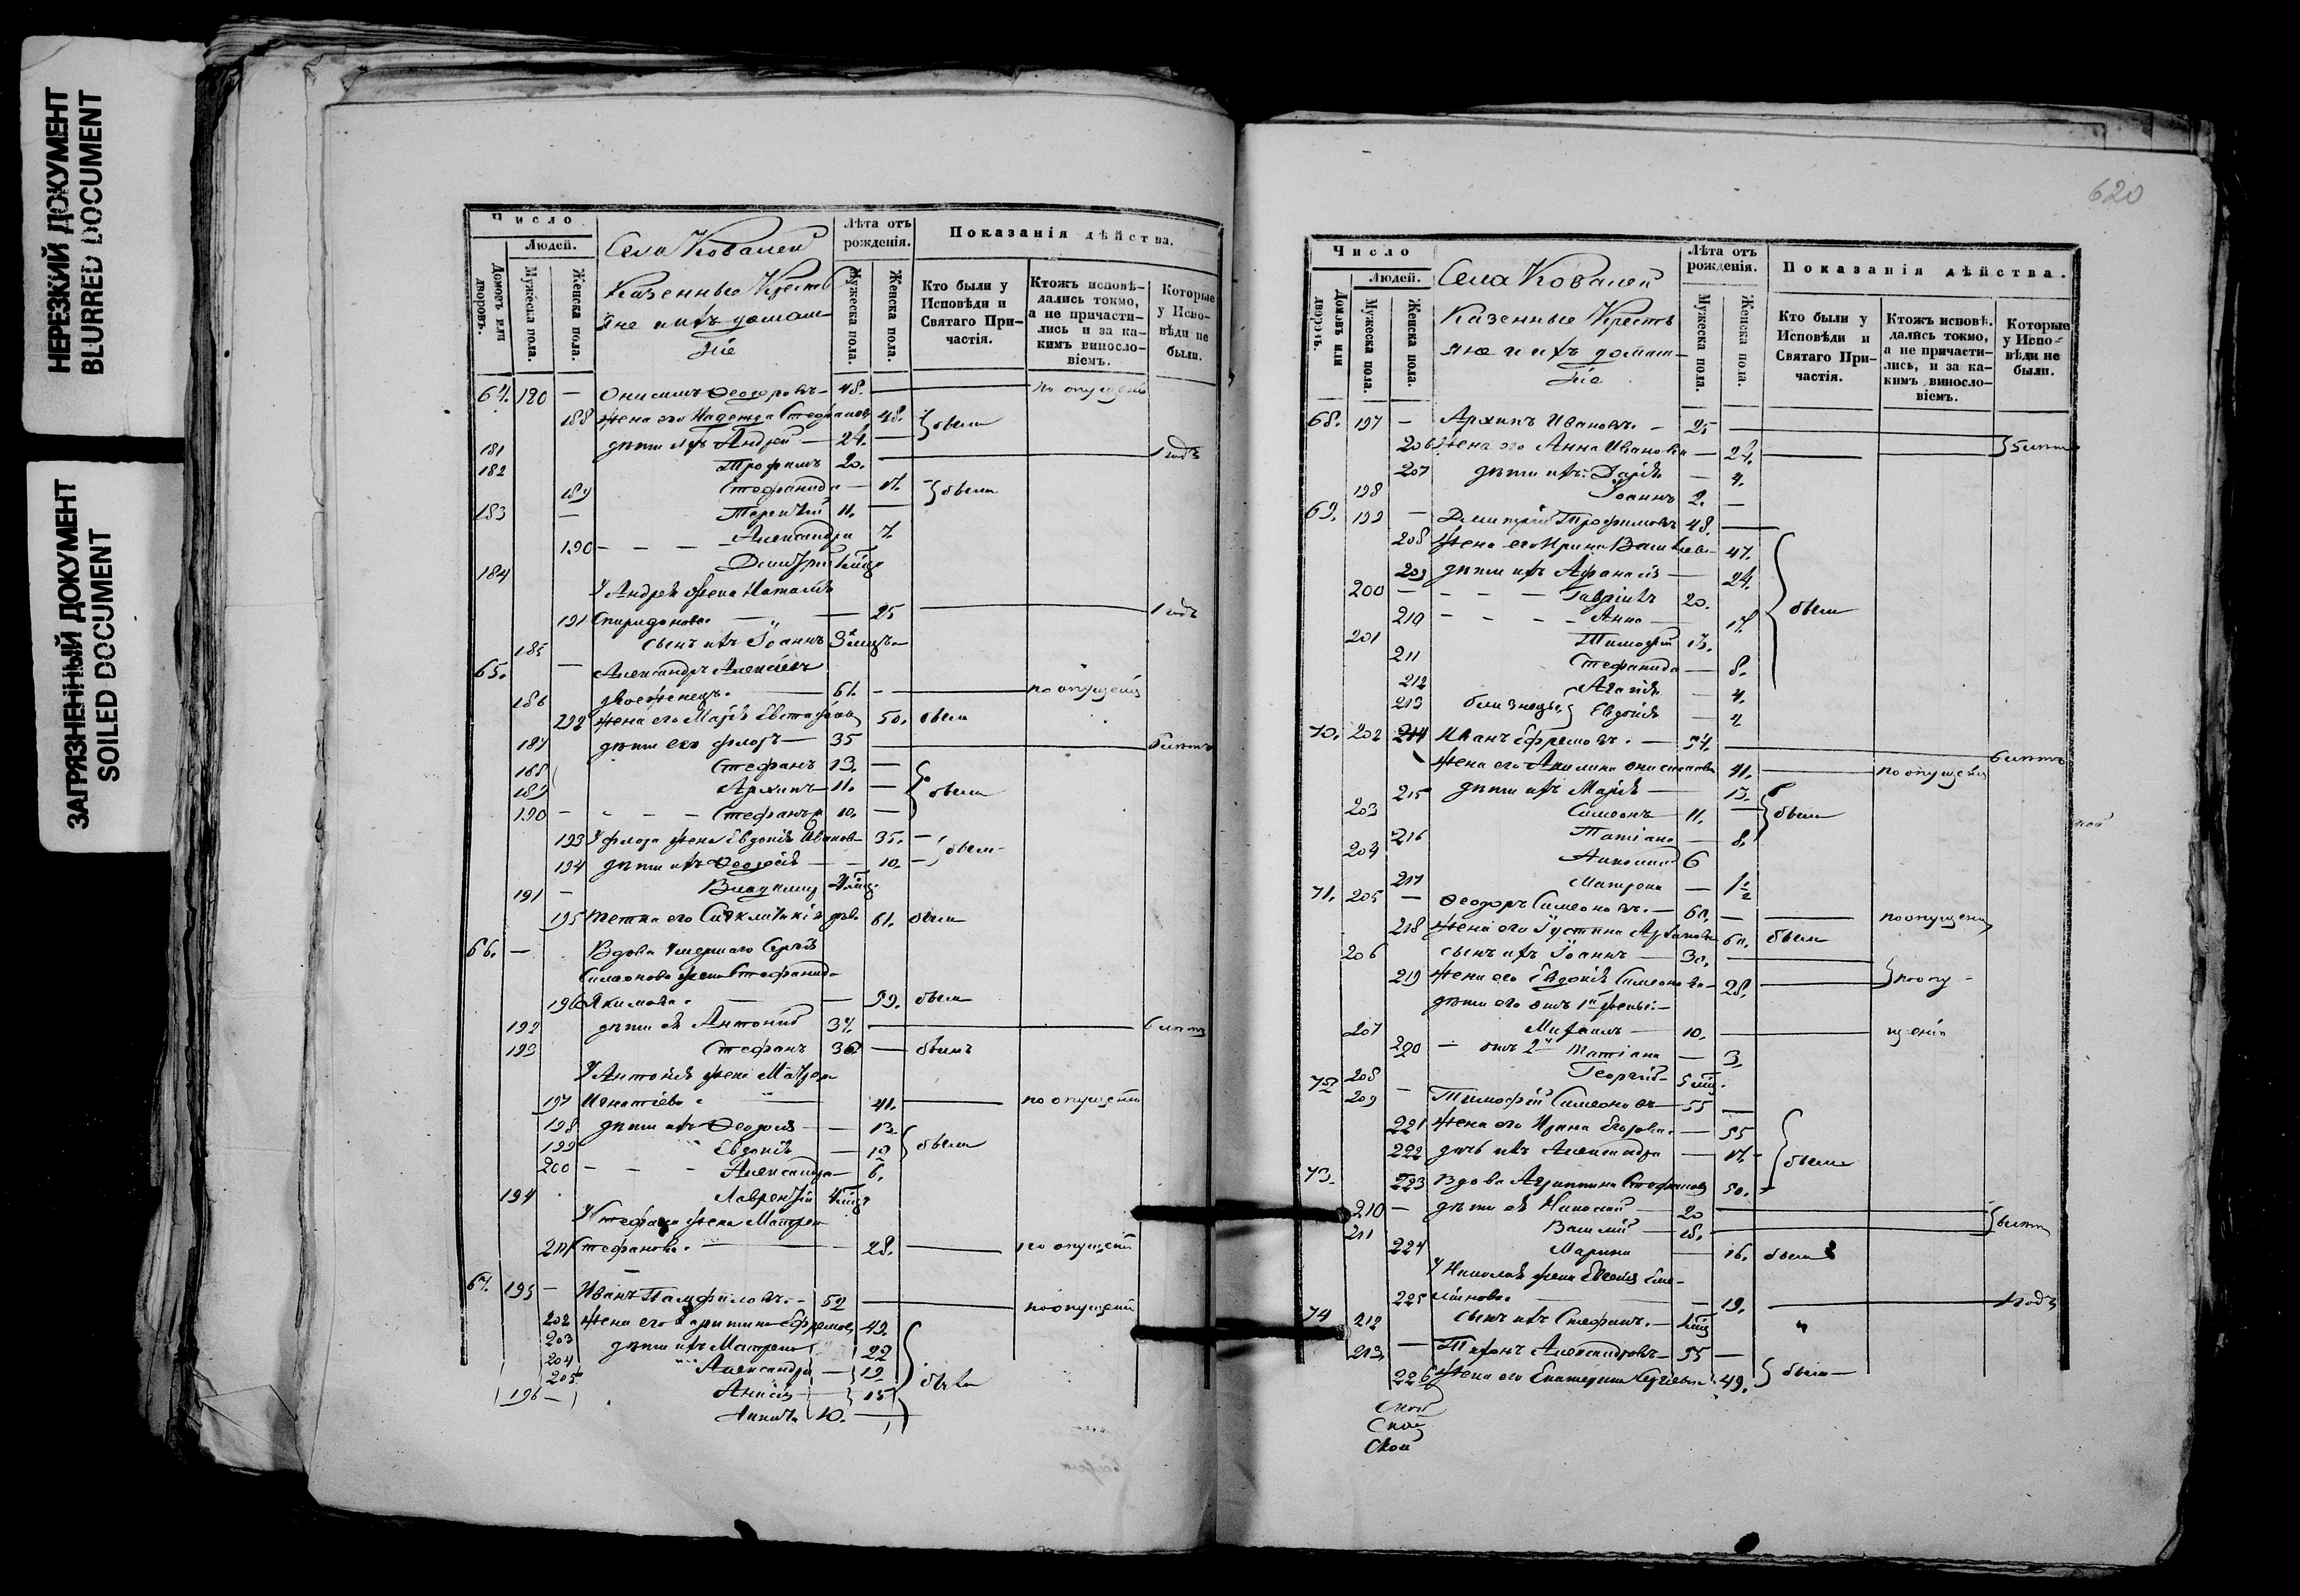 НЕРЕЗКИЙ ДОКУМЕНТ
BLURRED DOCUMENT
ЗАГРЯЗНЕННЫЙ ДОКУМЕНТ
SOILED DOCUMENT
Число
Людей.
Домовъ или дворовъ.
Мужеска пола.
Женска пола.
Села Ковалей
Казенные Кресть
яне и ихъ домаш
ніе
Лѣта отъ рожденія.
Мужеска пола.
Женска пола.
Показанія дѣйства.
Кто были у Исповѣди и Святаго При-частія.
Ктожъ исповѣ-дались токмо, а не причасти-лись и за ка-кимъ винosло-віемъ.
Которые у Испо-вѣди не были.
64. 180 — Онисимъ Ѳеодоровъ — 48. — по опущенію
188 жена его Надежда Стефанов 48. были
181 дѣти ихъ Андрей — 24. — 1 годъ
182 Трофимъ 20.
189 Стефанида — 17. были
183 — Терентій 11. —
190 — — — Александра 7.
184 Димитрій
У Андрея жена Наталія
191 Спиридонова — 25 — 1 годъ
185 сынъ ихъ Іоаннъ
65. — Александръ Алексіевъ
186 двоеженецъ. — 61. — по опущенію
192 жена его Марія Евстафіев 50. были
187 дѣти его Флоръ — 35
188 Стефанъ 13. —
189 Архипъ — 11. — были
190 — — — Стефанъ 10. —
193 У Флора жена Евдокія Иванов 35. —
194 дѣти ихъ Ѳеодосія — 10. — были
191 — Владимир
195 тетка его Сигклитикія дѣв. 61. были
66. — Вдова умершаго Сергія
Симеонова жена Стефанида
196 Якимова. — 59. были
192 дѣти ея Антоній 37. —
193 Стефанъ 36 — былъ
У Антонія жена Матрон
197 Игнатіева. — 41. — по опущенію
198 дѣти ихъ Ѳеодосія — 13.
199 Евдокія — 12 были
200 — — — Александра — 6.
194 Лаврентій
У Стефана жена Матрон
201 Стефанова. — 28. — по опущенію
67. 195 — Иванъ Памфиловъ. — 52 — по опущенію
202 жена его Харитина Ефремов 49.
203 дѣти ихъ Матрона 22
204 Александра — 19
205 Анисія 15 были
196 — Никита 10. —
620
Число
Людей.
Домовъ или дворовъ.
Мужеска пола.
Женска пола.
Села Ковалей
Казенные Кресть
яне и ихъ домаш-
ніе
Лѣта отъ рожденія.
Мужеска пола.
Женска пола.
Показанія дѣйства.
Кто были у Исповѣди и Святаго При-частія.
Ктожъ исповѣ-дались токмо, а не причасти-лись, и за ка-кимъ винosло-віемъ.
Которые у Испо-вѣди не были.
68. 197 — Архипъ Ивановъ. — 25
206 жена его Анна Иванова — 24.
207 дѣти ихъ: Дарія — 4.
198 Іоаннъ 2. —
69. 199 — Димитрій Трофимовъ 48. —
208 жена его Ирина Василіева — 47.
209 дѣти ихъ Афанасія — 24.
200 — — — Гавріилъ 20.
210 — — — Анна — 17.
201 Тимофей 13. были
211 Стефанида — 8.
212 Агафія — 4.
213 близнецы Евдокія — 4.
70. 202 214 Иванъ Ефремовъ. — 54.
жена его Акилина Онисимова 41. — по опущенію
215 дѣти ихъ Марія — 13.
203 Симеонъ 11. — были
216 Татіана — 8.
204 Николай 6
217 Матрона — 1½
71. 205 — Ѳеодоръ Симеоновъ. — 60. — по опущенію
218 жена его Іустина 60. были
206 сынъ ихъ Іоаннъ — 30.
219 жена его Евдокія Симеонова — 28. — по опу-
дѣти его отъ 1й жены: —
207 Михаилъ — 10. — щенію
220 — отъ 2й Татіана — 3
208 Георгій
72 209 — Тимофей Симеоновъ — 55 —
221 жена его Ирина Егорова. — 55
222 дочь ихъ Александра — 17. были
73. 223 Вдова Агриппина Стефанов 50.
210 — дѣти ея Николай — 20
211 Василій — 18.
224 Марина — 16. были
У Николая жена Евгенія Еме-
225 ліанова. — 19. — 1 годъ
74 212 сынъ ихъ Стефанъ. —
213. — Тихонъ Александровъ — 55 —
226 жена его Екатерина 49. были
Скои
Скои
Скои